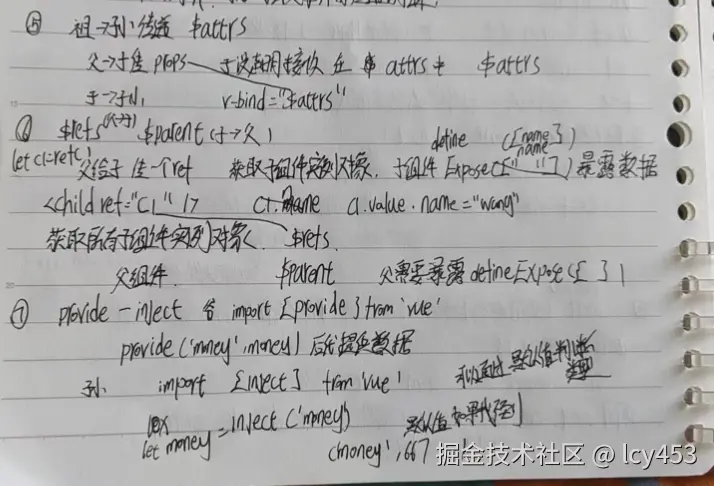 ⑤ 祖→孙 传递 $attrs
父→子 传 props 子没有用接收 在 $attrs 中 $attrs
子→子 v-bind="$attrs"
⑥ $refs (父→子) $parent (子→父) define ({name})
let c1=ref() 父给子 传一个ref 获取子组件实例对象. 子组件 Expose 暴露数据
<child ref="c1" /> c1.name c1.value.name="wang"
获取所有子组件实例对象 $refs.
父组件. $parent 父需要暴露 defineExpose({ })
⑦ provide-inject import {provide} from 'vue'
provide('money',money) 后代 数据
孙. import {inject} from 'vue' 可以通过 默认值判断 类型
let money=inject('money') 默认值 如果找不到
('money',667
掘金技术社区 @ lcy453